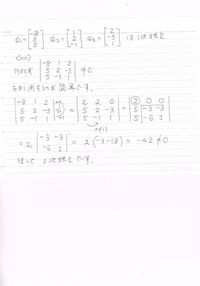 a₁ = [-8 5 5] a₂ = [1 2 -1] a₃ = [2 -3 1] は1次独立
⟺
行列式 |-8 1 2 / 5 2 -3 / 5 -1 1| ≠ 0
を利用するのが簡単です。
|-8 1 2 / 5 2 -3 / 5 -1 1| = |2 2 0 / 5 2 -3 / 5 -1 1| = |2 0 0 / 5 -3 -3 / 5 -6 1|
×(-1)
= 2 |-3 -3 / -6 1| = 2(-3-18) = -42 ≠ 0
従って 1次独立です。